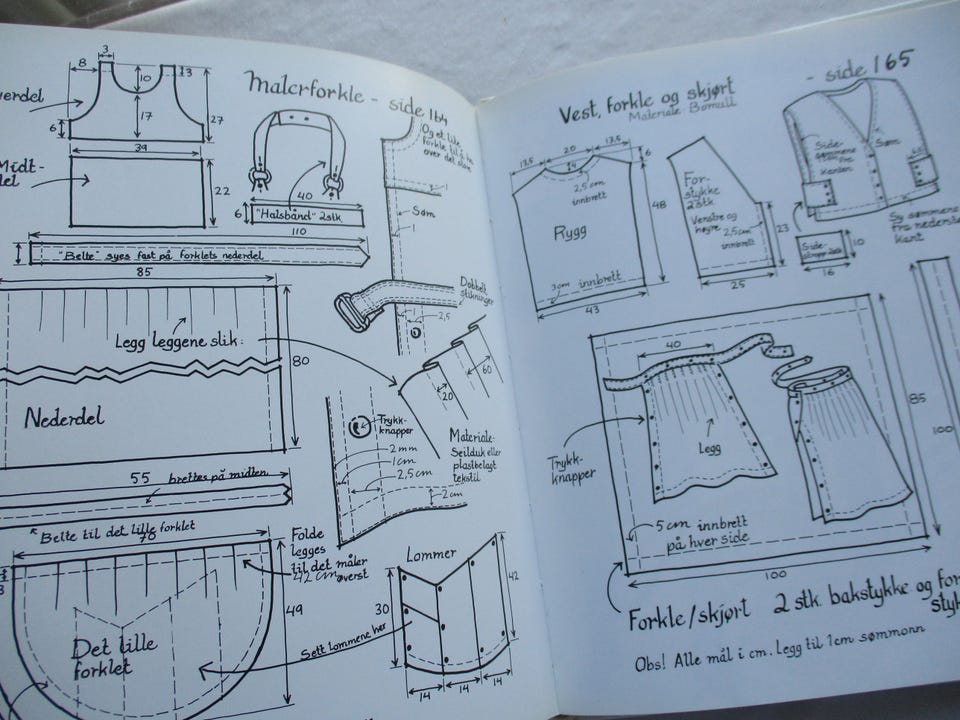 Malerforkle - side 164
3
8
10
3
17
27
6
39
22
40
6
"Halsbånd" 2stk.
110
"Belte" syes fast på forklets nederdel
85
Legg leggene slik:
80
Nederdel
55 brettes på midten
Belte til det lille forklet
78
Folde
legges
til det måler
42 cm øverst
3
49
Det lille
forklet
Og et lite
over det store
1
Søm
1
Dobbelt
stikninger
1
2,5
60
20
Trykk-
knapper
2mm
1cm
2,5cm
2cm
Materiale:
Seilduk eller
plastbelagt
tekstil
Lommer
42
30
Sett lommene her
14
14
14
Vest, forkle og skjørt - side 165
Materiale Bomull
13,5 20 13,5
6
4
2,5 cm
innbrett
48
Rygg
3cm innbrett
43
For-
stykke
2stk.
Venstre og
høyre
2,5cm
innbrett
23
25
Side-
sømmene
fra
kanten
Søm
Sy sømmene
fra nederste
kant
Side-
10
16
40
Legg
Trykk-
knapper
85
100
5 cm innbrett
på hver side
100
Forkle/skjørt 2 stk. bakstykke og for
styk
Obs! Alle mål i cm. Legg til 1cm sømmonn